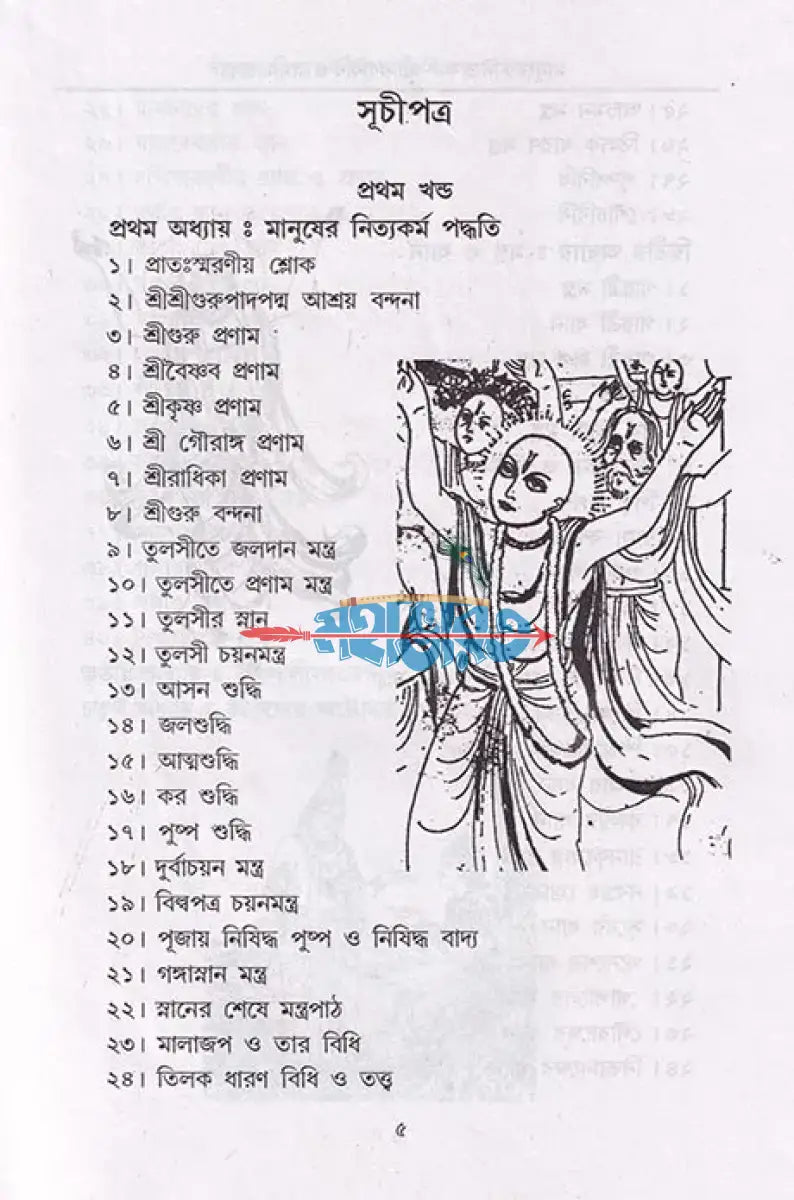 সূচীপত্র
প্রথম খন্ড
প্রথম অধ্যায় ঃ মানুষের নিত্যকর্ম পদ্ধতি
১। প্রাতঃস্মরণীয় শ্লোক
২। শ্রীশ্রীগুরুপাদপদ্ম আশ্রয় বন্দনা
৩। শ্রীগুরু প্রণাম
৪। শ্রীবৈষ্ণব প্রণাম
৫। শ্রীকৃষ্ণ প্রণাম
৬। শ্রী গৌরাঙ্গ প্রণাম
৭। শ্রীরাধিকা প্রণাম
৮। শ্রীগুরু বন্দনা
৯। তুলসীতে জলদান মন্ত্র
১০। তুলসীতে প্রণাম মন্ত্র
১১। তুলসীর স্নান
মহাভারত
১২। তুলসী চয়নমন্ত্র
১৩। আসন শুদ্ধি
১৪। জলশুদ্ধি
১৫। আত্মশুদ্ধি
১৬। কর শুদ্ধি
১৭। পুষ্প শুদ্ধি
১৮। দুর্বাচয়ন মন্ত্র
১৯। বিল্বপত্র চয়নমন্ত্র
২০। পূজায় নিষিদ্ধ পুষ্প ও নিষিদ্ধ বাদ্য
২১। গঙ্গাস্নান মন্ত্র
২২। স্নানের শেষে মন্ত্রপাঠ
২৩। মালাজপ ও তার বিধি
২৪। তিলক ধারণ বিধি ও তত্ত্ব
৫